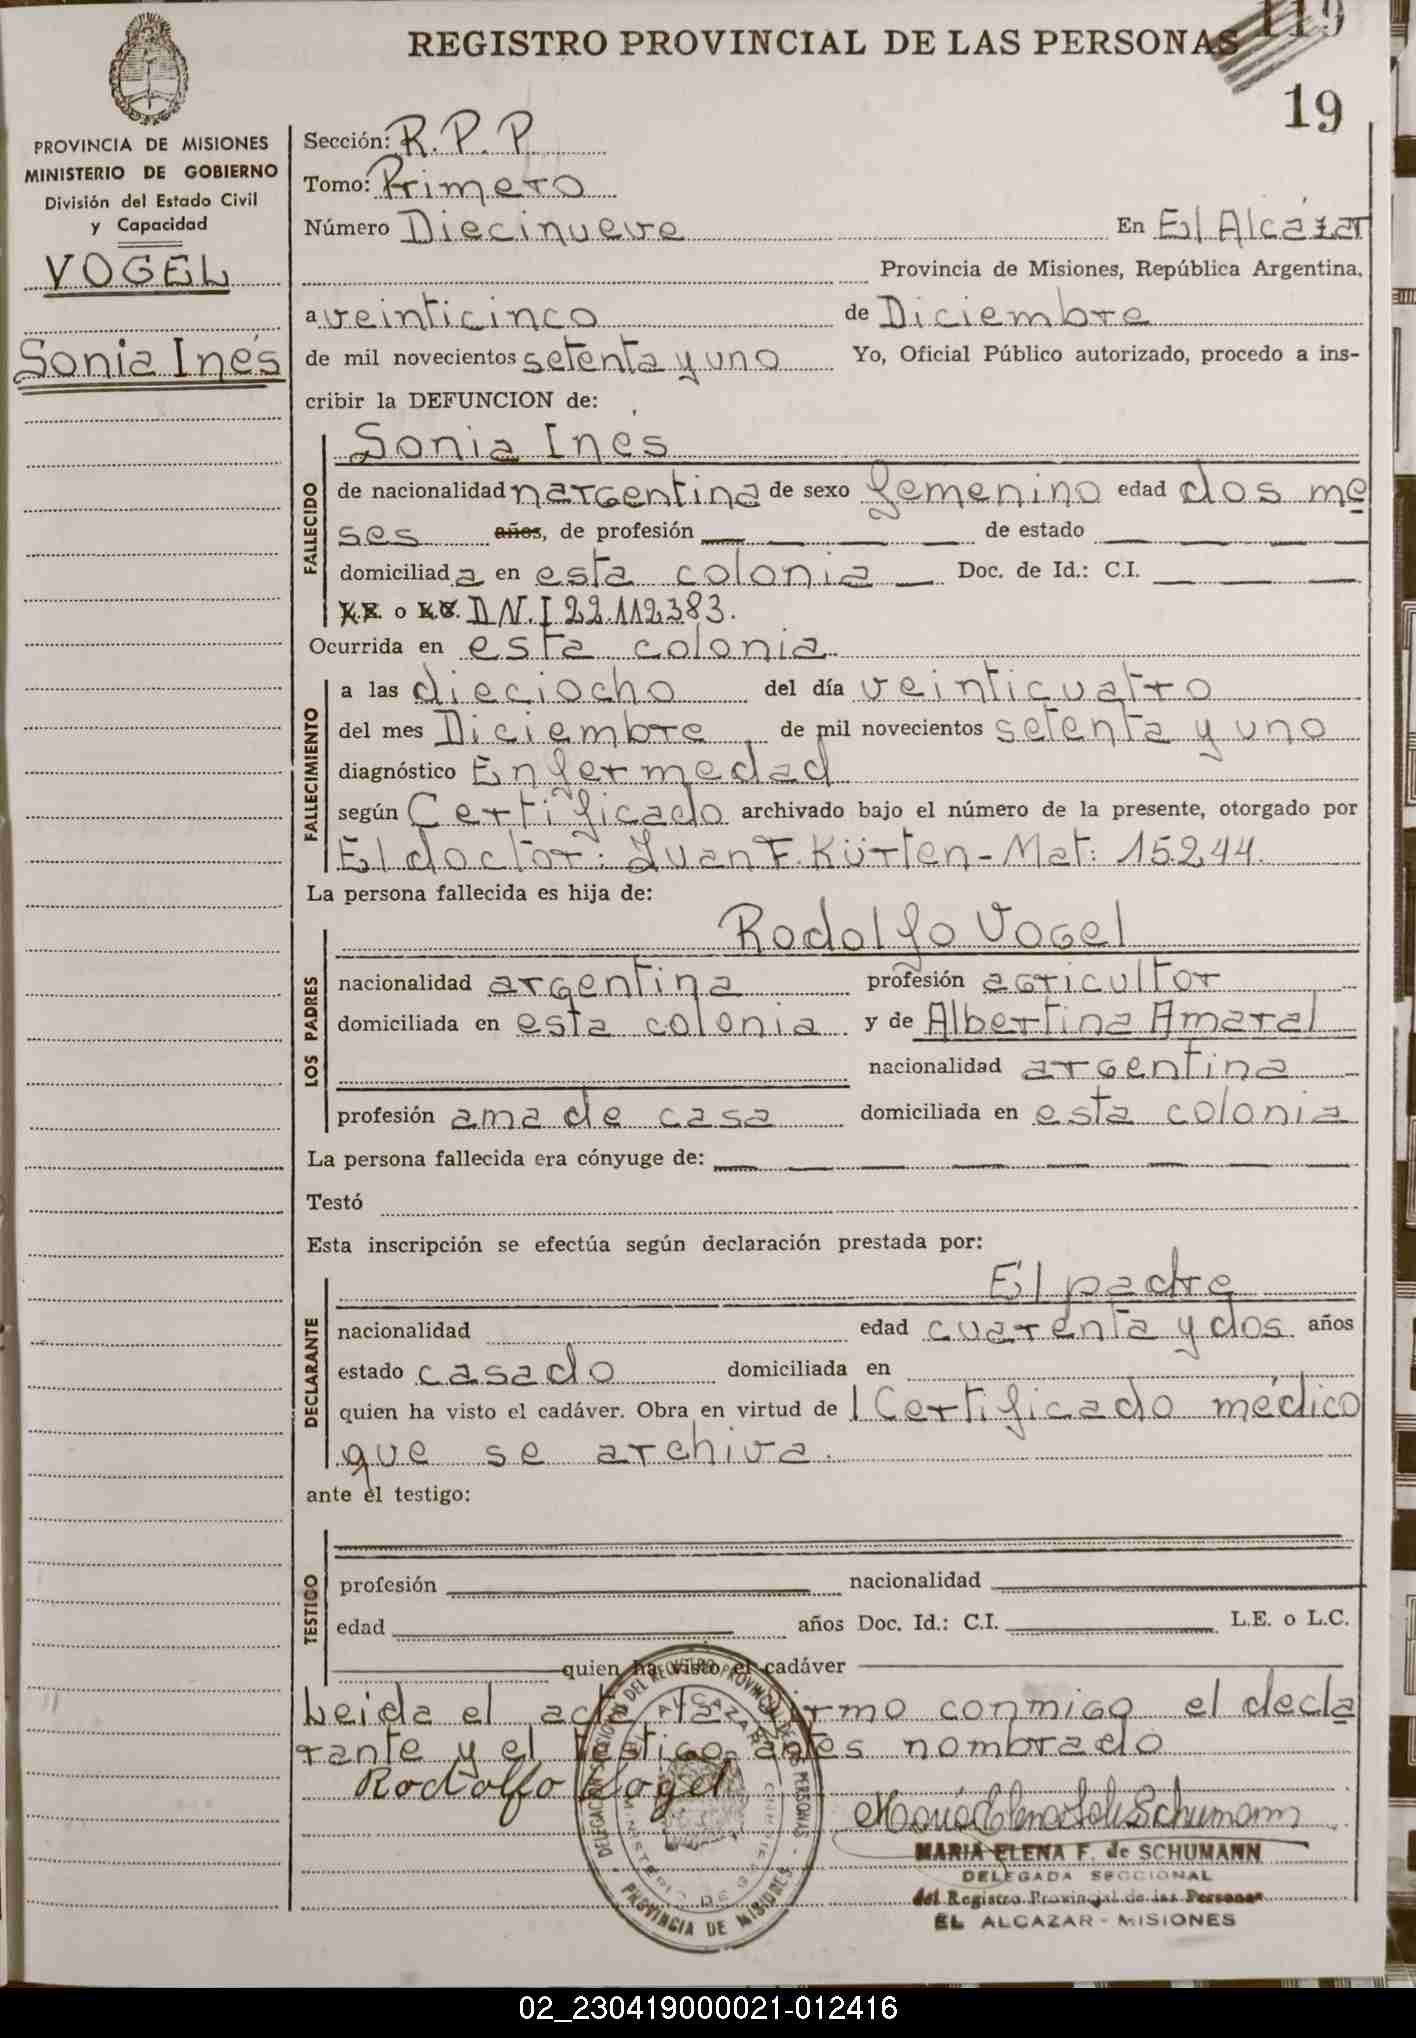 REGISTRO PROVINCIAL DE LAS PERSONAS
119
19
PROVINCIA DE MISIONES
MINISTERIO DE GOBIERNO
División del Estado Civil
y Capacidad
VOGEL
Sonia Inés
Sección: R.P.P.
Tomo: Primero
Número Diecinueve En El Alcázar
Provincia de Misiones, República Argentina,
a veinticinco de Diciembre
de mil novecientos setenta y uno Yo, Oficial Público autorizado, procedo a ins-
cribir la DEFUNCION de:
FALLECIDO
Sonia Inés
de nacionalidad nargentina de sexo femenino edad dos me
ses años, de profesión de estado
domiciliada en esta colonia Doc. de Id.: C.I.
o D.N.I 22.112.383.
Ocurrida en esta colonia
FALLECIMIENTO
a las dieciocho del día veinticuatro
del mes Diciembre de mil novecientos setenta y uno
diagnóstico Enfermedad
según Certificado archivado bajo el número de la presente, otorgado por
El doctor: Juan F. Kürten - Mat: 15244.
La persona fallecida es hija de:
LOS PADRES
Rodolfo Vogel
nacionalidad argentina profesión agricultor
domiciliada en esta colonia y de Albertina Amaral
nacionalidad argentina
profesión ama de casa domiciliada en esta colonia
La persona fallecida era cónyuge de:
Testó
Esta inscripción se efectúa según declaración prestada por:
DECLARANTE
El padre
nacionalidad edad cuarenta y dos años
estado casado domiciliada en
quien ha visto el cadáver. Obra en virtud de l Certificado médico
que se archiva.
ante el testigo:
TESTIGO
profesión nacionalidad
edad años Doc. Id.: C.I. L.E. o L.C.
quien ha visto el cadáver
Leida el acta la firmo conmigo el decla
rante y el testigo antes nombrado
Rodolfo Vogel
DELEGACION DEL REGISTRO PROVINCIAL DE LAS PERSONAS
EL ALCAZAR
MINISTERIO DE
PROVINCIA DE MISIONES
MARIA ELENA F. de SCHUMANN
DELEGADA SECCIONAL
del Registro Provincial de las Personas
EL ALCAZAR - MISIONES
02_230419000021-012416